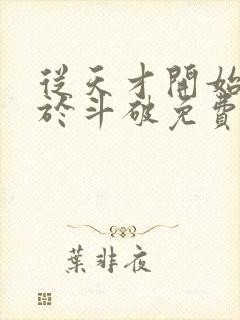 從天才開始
於斗破免費
葉非夜